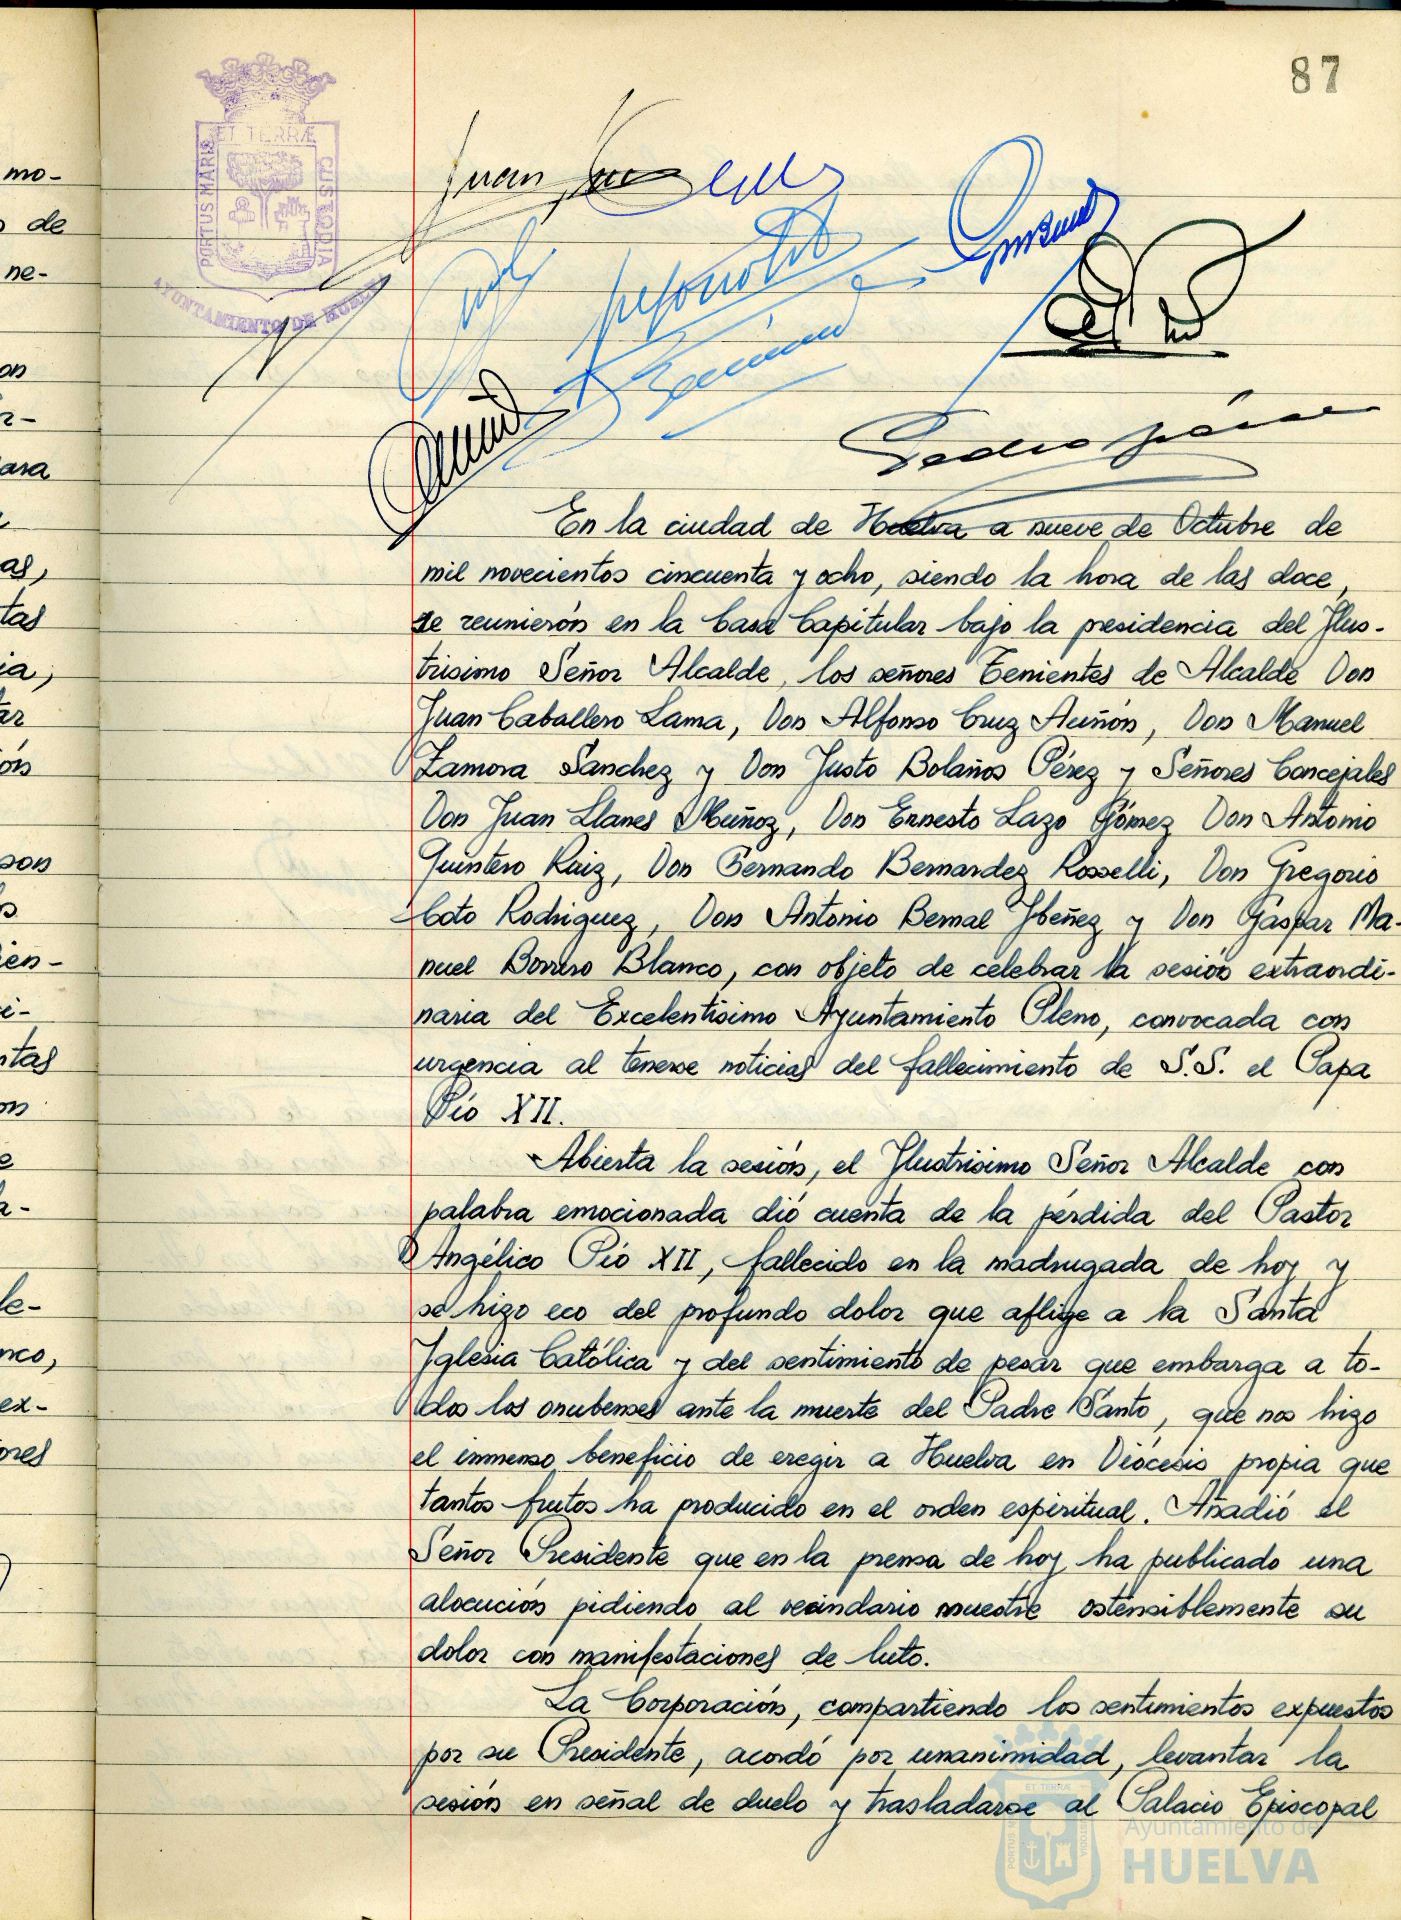 87
ET TERRÆ
PORTUS MARIS
CUSTODIA
AYUNTAMIENTO DE HUELVA
Juan
Pedro
mo-
de
ne-
on
r-
ara
as,
tas
ia,
ar
ón
son
ien-
ci-
ntas
on
e
a-
le-
nco,
ex-
ores
En la ciudad de Huelva a nueve de Octubre de
mil novecientos cincuenta y ocho, siendo la hora de las doce,
se reunierón en la Casa Capitular bajo la presidencia del Ilus-
trisimo Señor Alcalde, los señores Tenientes de Alcalde Don
Juan Caballero Lama, Don Alfonso Cruz Auñón, Don Manuel
Zamora Sanchez y Don Justo Bolaños Pérez y Señores Concejales
Don Juan Llanes Muñoz, Don Ernesto Lazo Gómez Don Antonio
Quintero Ruiz, Don Fernando Bernardez Rosselli, Don Gregorio
Coto Rodriguez, Don Antonio Bernal Ybeñez y Don Gaspar Ma-
nuel Borrero Blanco, con objeto de celebrar la sesión extraordi-
naria del Excelentisimo Ayuntamiento Pleno, convocada con
urgencia al tenerse noticias del fallecimiento de S.S. el Papa
Pío XII.
Abierta la sesión, el Ilustrisimo Señor Alcalde con
palabra emocionada dió cuenta de la pérdida del Pastor
Angélico Pío XII, fallecido en la madrugada de hoy y
se hizo eco del profundo dolor que aflige a la Santa
Iglesia Católica y del sentimiento de pesar que embarga a to-
dos los onubenses ante la muerte del Padre Santo, que nos hizo
el inmenso beneficio de eregir a Huelva en Diócesis propia que
tantos frutos ha producido en el orden espiritual. Añadió el
Señor Presidente que en la prensa de hoy ha publicado una
alocución pidiendo al vecindario muestre ostensiblemente su
dolor con manifestaciones de luto.
La Corporación, compartiendo los sentimientos expuestos
por su Presidente, acordó por unanimidad, levantar la
sesión en señal de duelo y trasladarse al Palacio Episcopal
Ayuntamiento de
HUELVA